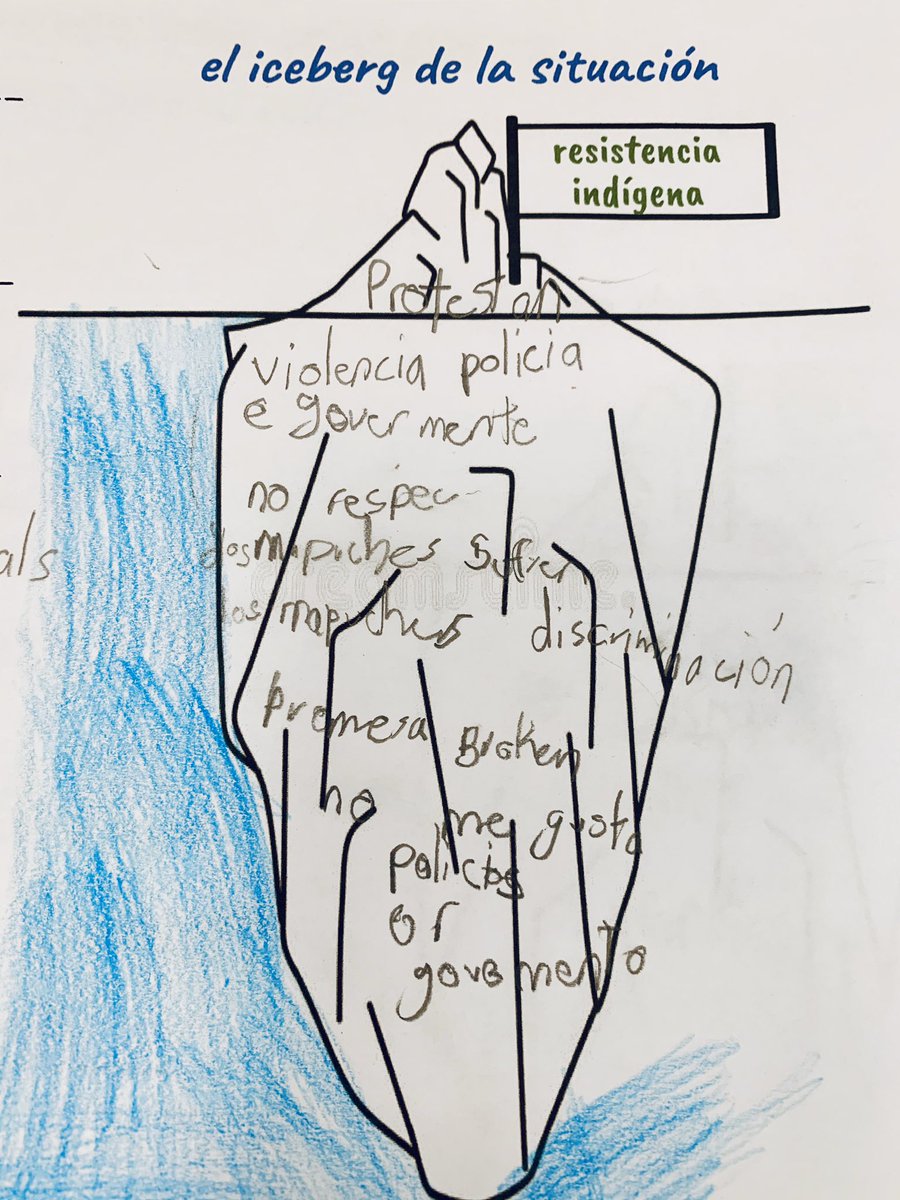 el iceberg de la situación
resistencia
indígena
Protestan
violencia policia
e govermente
no respec-
dos Mapuches Sufren
los mapuches discriminación
promesa Broken
no me gusta
policias
or
govemento
als